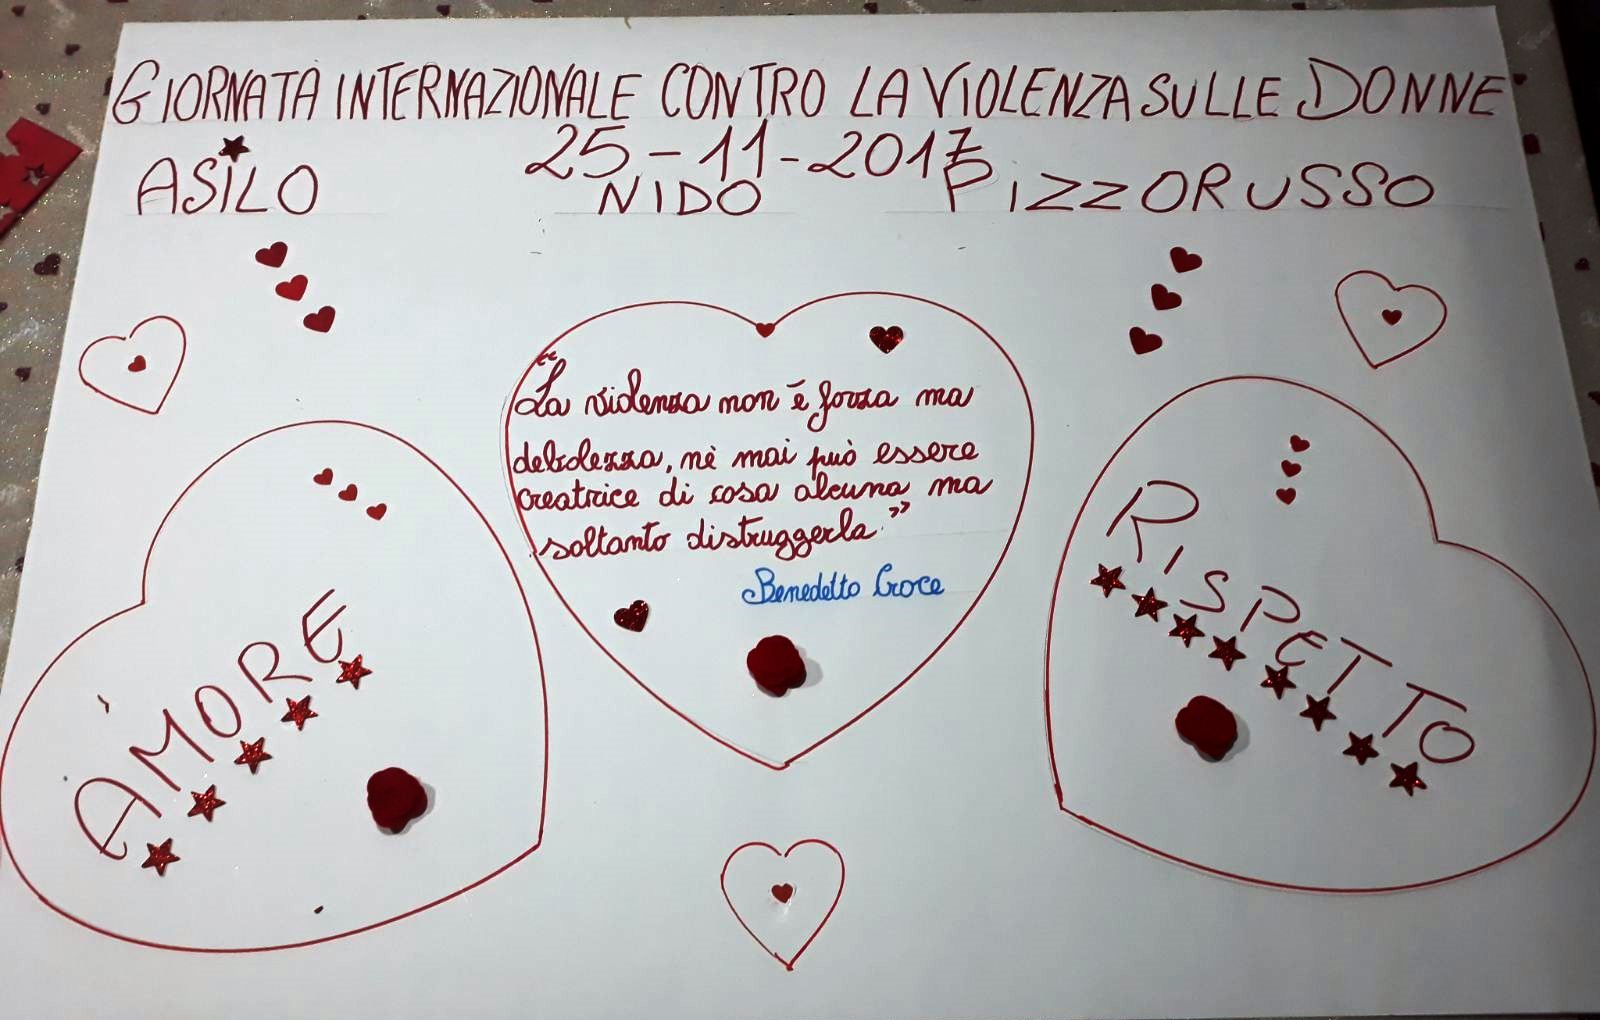 GIORNATA INTERNAZIONALE CONTRO LA VIOLENZA SULLE DONNE
25-11-2017
ASILO NIDO PIZZORUSSO
"La violenza non è forza ma
debolezza, nè mai può essere
creatrice di cosa alcuna ma
soltanto distruggerla."
Benedetto Croce
AMORE
RISPETTO